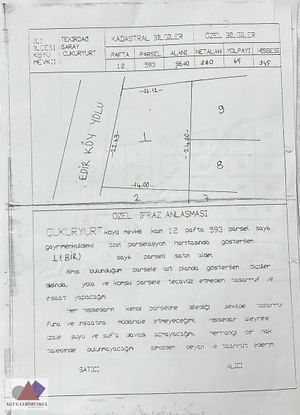 İLİ :TEKİRDAĞ
İLÇESİ :SARAY
KÖYÜ :ÇUKURYURT
MEVKİİ :
KADASTRAL BİLGİLER
ÖZEL BİLGİLER
PAFTA PARSEL ALANI NETALAN YOLPAYI HİSSESİ
12 593 8640 280 65 345
EDİR KÖY YOLU
1
9
8
14.00
2
7
ÖZEL İFRAZ ANLAŞMASI
ÇUKURYURT köyü mevkii 12 pafta 593 parsel sayılı
gayrimenkuldeki özel parselasyon haritasında gösterilen
1 (BİR) sayılı parseli satın aldım.
Almış bulunduğum parsele ait planda gösterilen ölçüler
dışında, yola ve komşu parsele tecavüz etmeden tasarruf ve
inşaat yapacağım.
Her hissedarın kendi parseline dilediği şekilde
ve inşaatına müdahale etmeyeceğimi, hissedar aleyhine
izale şuyu ve şuf'a davası açmayacağımı, herhangi bir hak
talebinde bulunmayacağımı şimdiden beyan ve taahhüt ederim.
SATICI ALICI
AGT GAYRİMENKUL